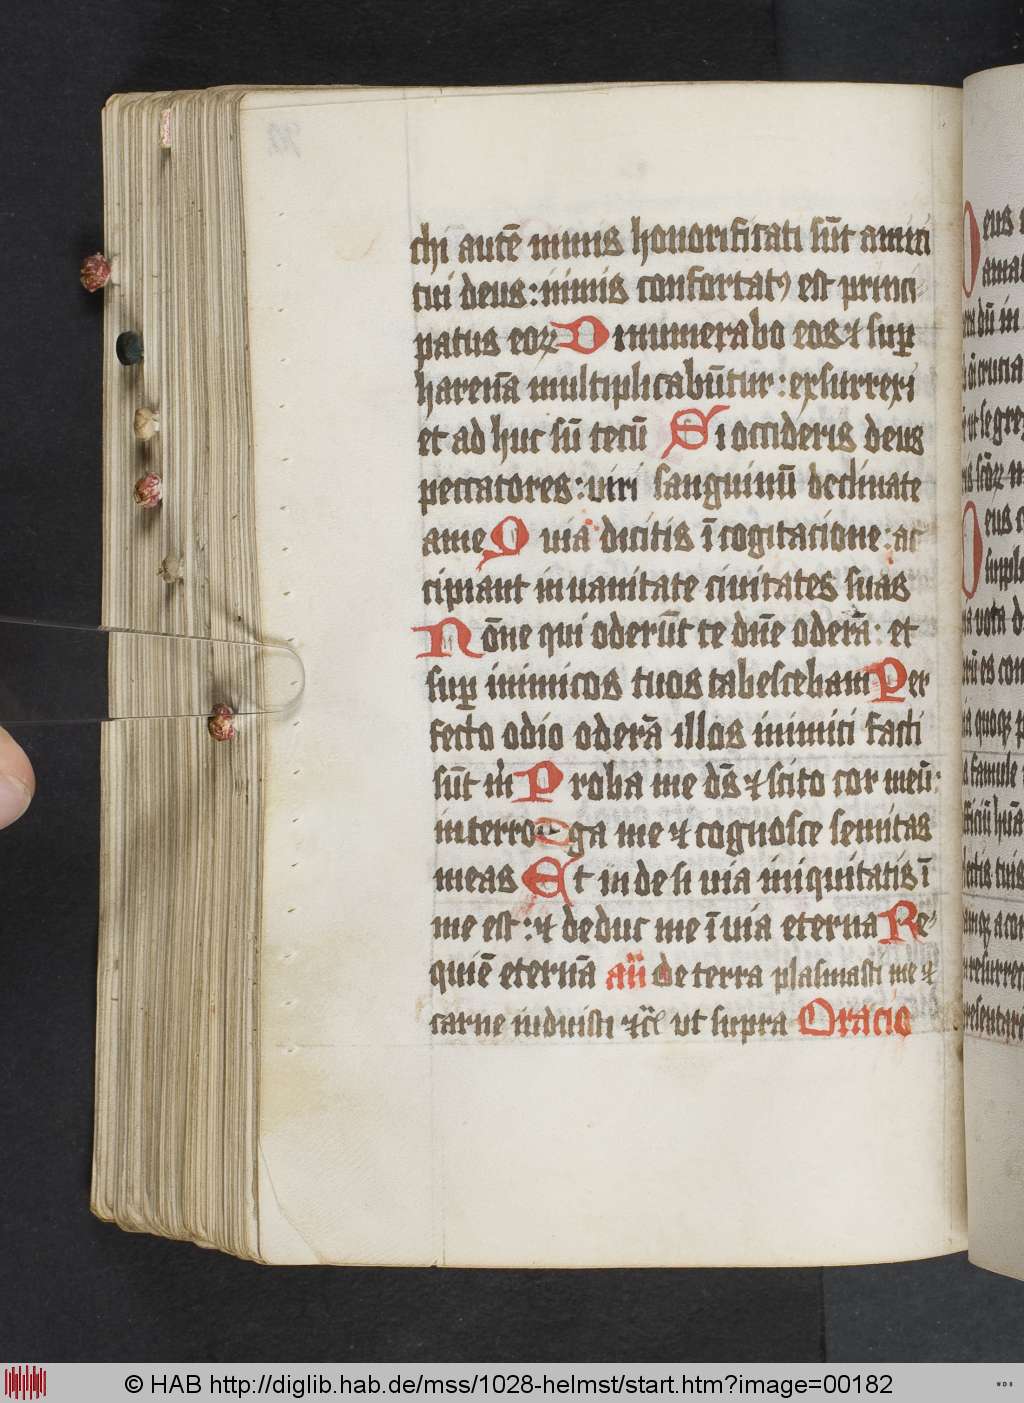 chi autē nimis honorificati sūt amici
tui deus: nimis confortatꝯ est princi
patus eoꝝ Dinumerabo eos ⁊ suꝑ
harenā multiplicabūtur: exsurrexi
et ad huc sū tecū Si occideris deus
peccatores: viri sanguinū declinate
ame Quia dicitis ī cogitacione: ac
cipiant in uanitate ciuitates suas
Nōne qui oderūt te dn̄e oderā: et
suꝑ inimicos tuos tabescebam Per
fecto odio oderā illos inimici facti
sūt m̄ Proba me ds̄ ⁊ scito cor meū:
interroga me ⁊ cognosce semitas
meas Et uide si uia iniquitatis ī
me est: ⁊ deduc me ī uia eterna Re
quiē eternā añ de terra plasmasti me ⁊
carne induisti ⁊c̄ ut supra Oracio
eus
dū in
crucia
ut se gre
eus
suppl
vota d
es con
quoqꝫ p
famule
hūa
tuis
resurrec
presentare
© HAB http://diglib.hab.de/mss/1028-helmst/start.htm?image=00182